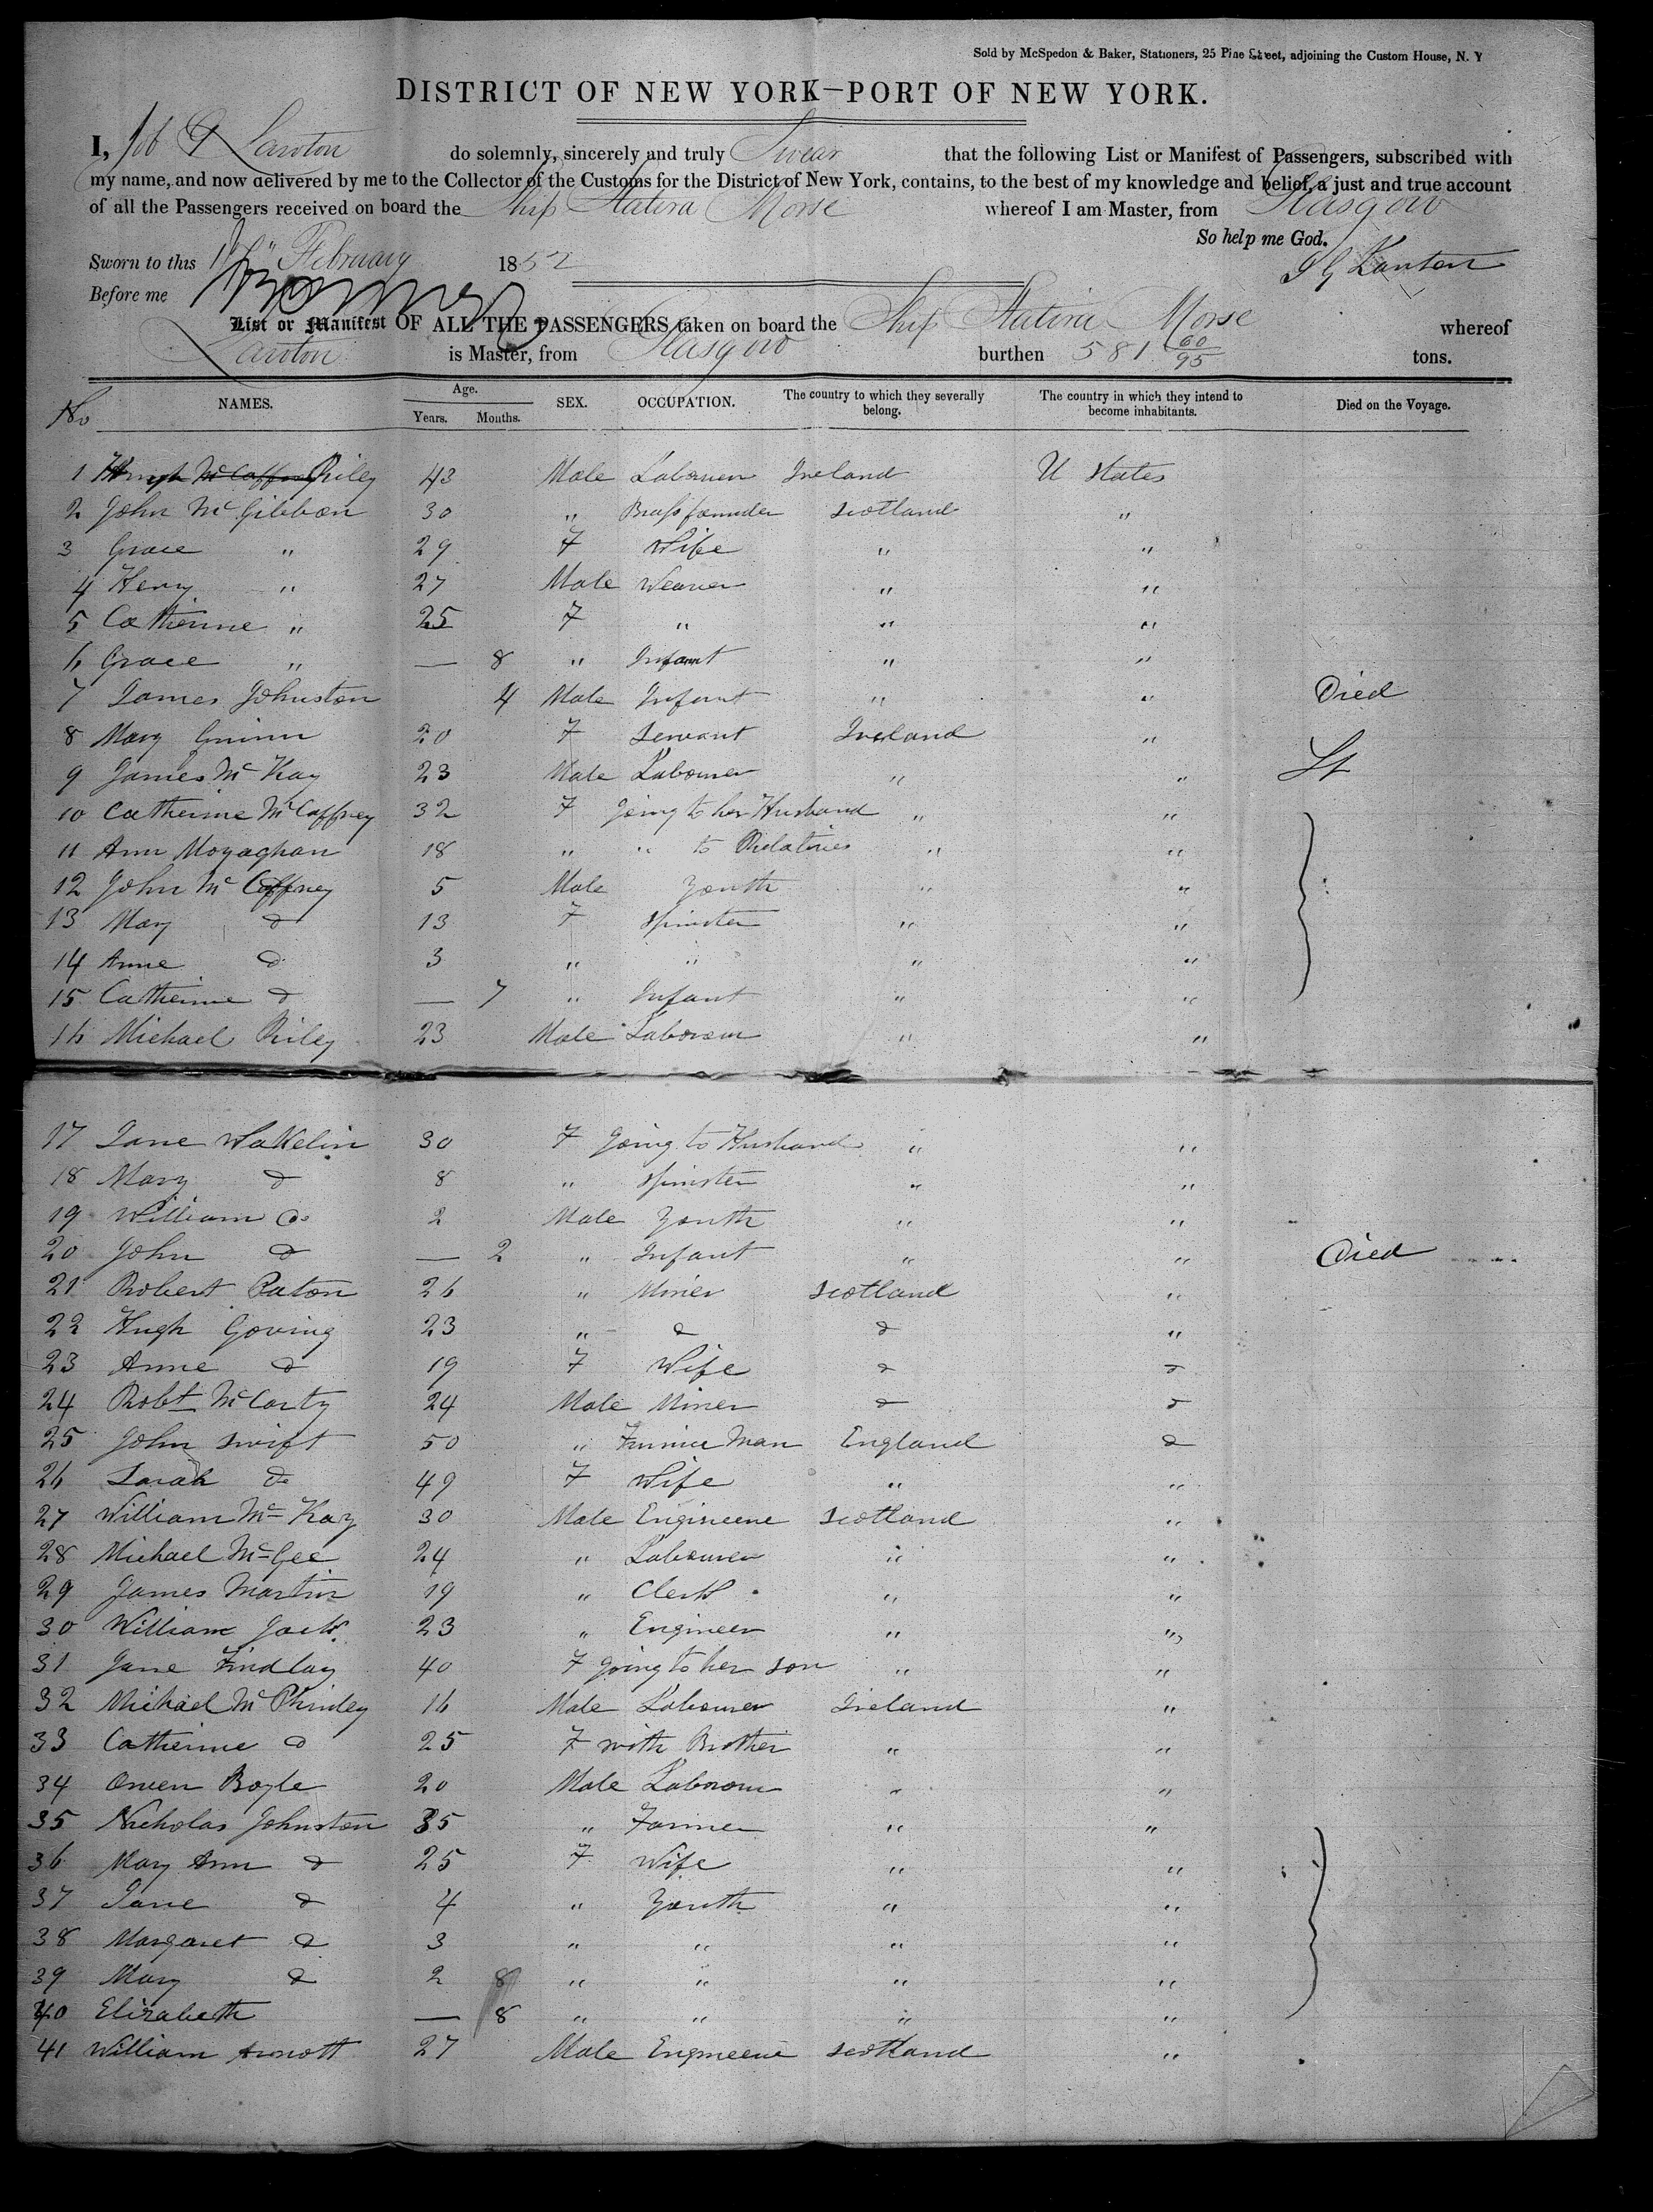 Sold by McSpedon & Baker, Stationers, 25 Pine Street, adjoining the Custom House, N. Y
DISTRICT OF NEW YORK—PORT OF NEW YORK.
I, Job G Lawton do solemnly, sincerely and truly Swear that the following List or Manifest of Passengers, subscribed with
my name, and now delivered by me to the Collector of the Customs for the District of New York, contains, to the best of my knowledge and belief, a just and true account
of all the Passengers received on board the Ship Statira Morse whereof I am Master, from Glasgow
So help me God.
Sworn to this February 1852 J G Lawton
Before me
List or Manifest OF ALL THE PASSENGERS taken on board the Ship Statira Morse whereof
Lawton is Master, from Glasgow burthen 581 60/95 tons.
No NAMES. Age. Years. Months. SEX. OCCUPATION. The country to which they severally belong. The country in which they intend to become inhabitants. Died on the Voyage.
1 Hugh McCaffrey Riley 43 Male Labourer Ireland U States
2 John McGibbon 30 " Brassfounder Scotland "
3 Grace " 29 F Wife " "
4 Henry " 27 Male Weaver " "
5 Catherine " 25 F " " "
6 Grace " — 8 " Infant " "
7 James Johnston 4 Male Infant " " Died
8 Mary 20 F Servant Ireland "
9 James McKay 23 Male Labourer " "
10 Catherine McCaffrey 32 F going to her Husband " "
11 Ann Monaghan 18 " " to Relatives " "
12 John McCaffrey 5 Male Youth " "
13 Mary do 13 F Spinster " "
14 Anne do 3 " " " "
15 Catherine do — 7 " Infant " "
16 Michael Riley 23 Male Labourer " "
17 Jane Wakelin 30 F going to Husband " "
18 Mary do 8 " Spinster " "
19 William Do 2 Male Youth " "
20 John do — 2 " Infant " " Died
21 Robert Paton 26 " Miner Scotland "
22 Hugh Goving 23 " do do "
23 Anne do 19 F Wife do do
24 Robt McCarty 24 Male Miner do do
25 John Swift 50 " Furnice Man England do
26 Sarah do 49 F Wife " "
27 William McKay 30 Male Engineene Scotland "
28 Michael McGee 24 " Labourer " "
29 James Martin 19 " Clerk " "
30 William Jack 23 " Engineer " "
31 Jane Findlay 40 F going to her son " "
32 Michael McPhinley 16 Male Labourer Ireland "
33 Catherine do 25 F with Brother " "
34 Owen Boyle 20 Male Labourer " "
35 Nicholas Johnston 35 " Farmer " "
36 Mary Ann do 25 F Wife " "
37 Jane do 4 " Youth " "
38 Margaret do 3 " " " "
39 Mary do 2 8 " " " "
40 Elizabeth — 8 " " " "
41 William Arnott 27 Male Engineene Scotland "